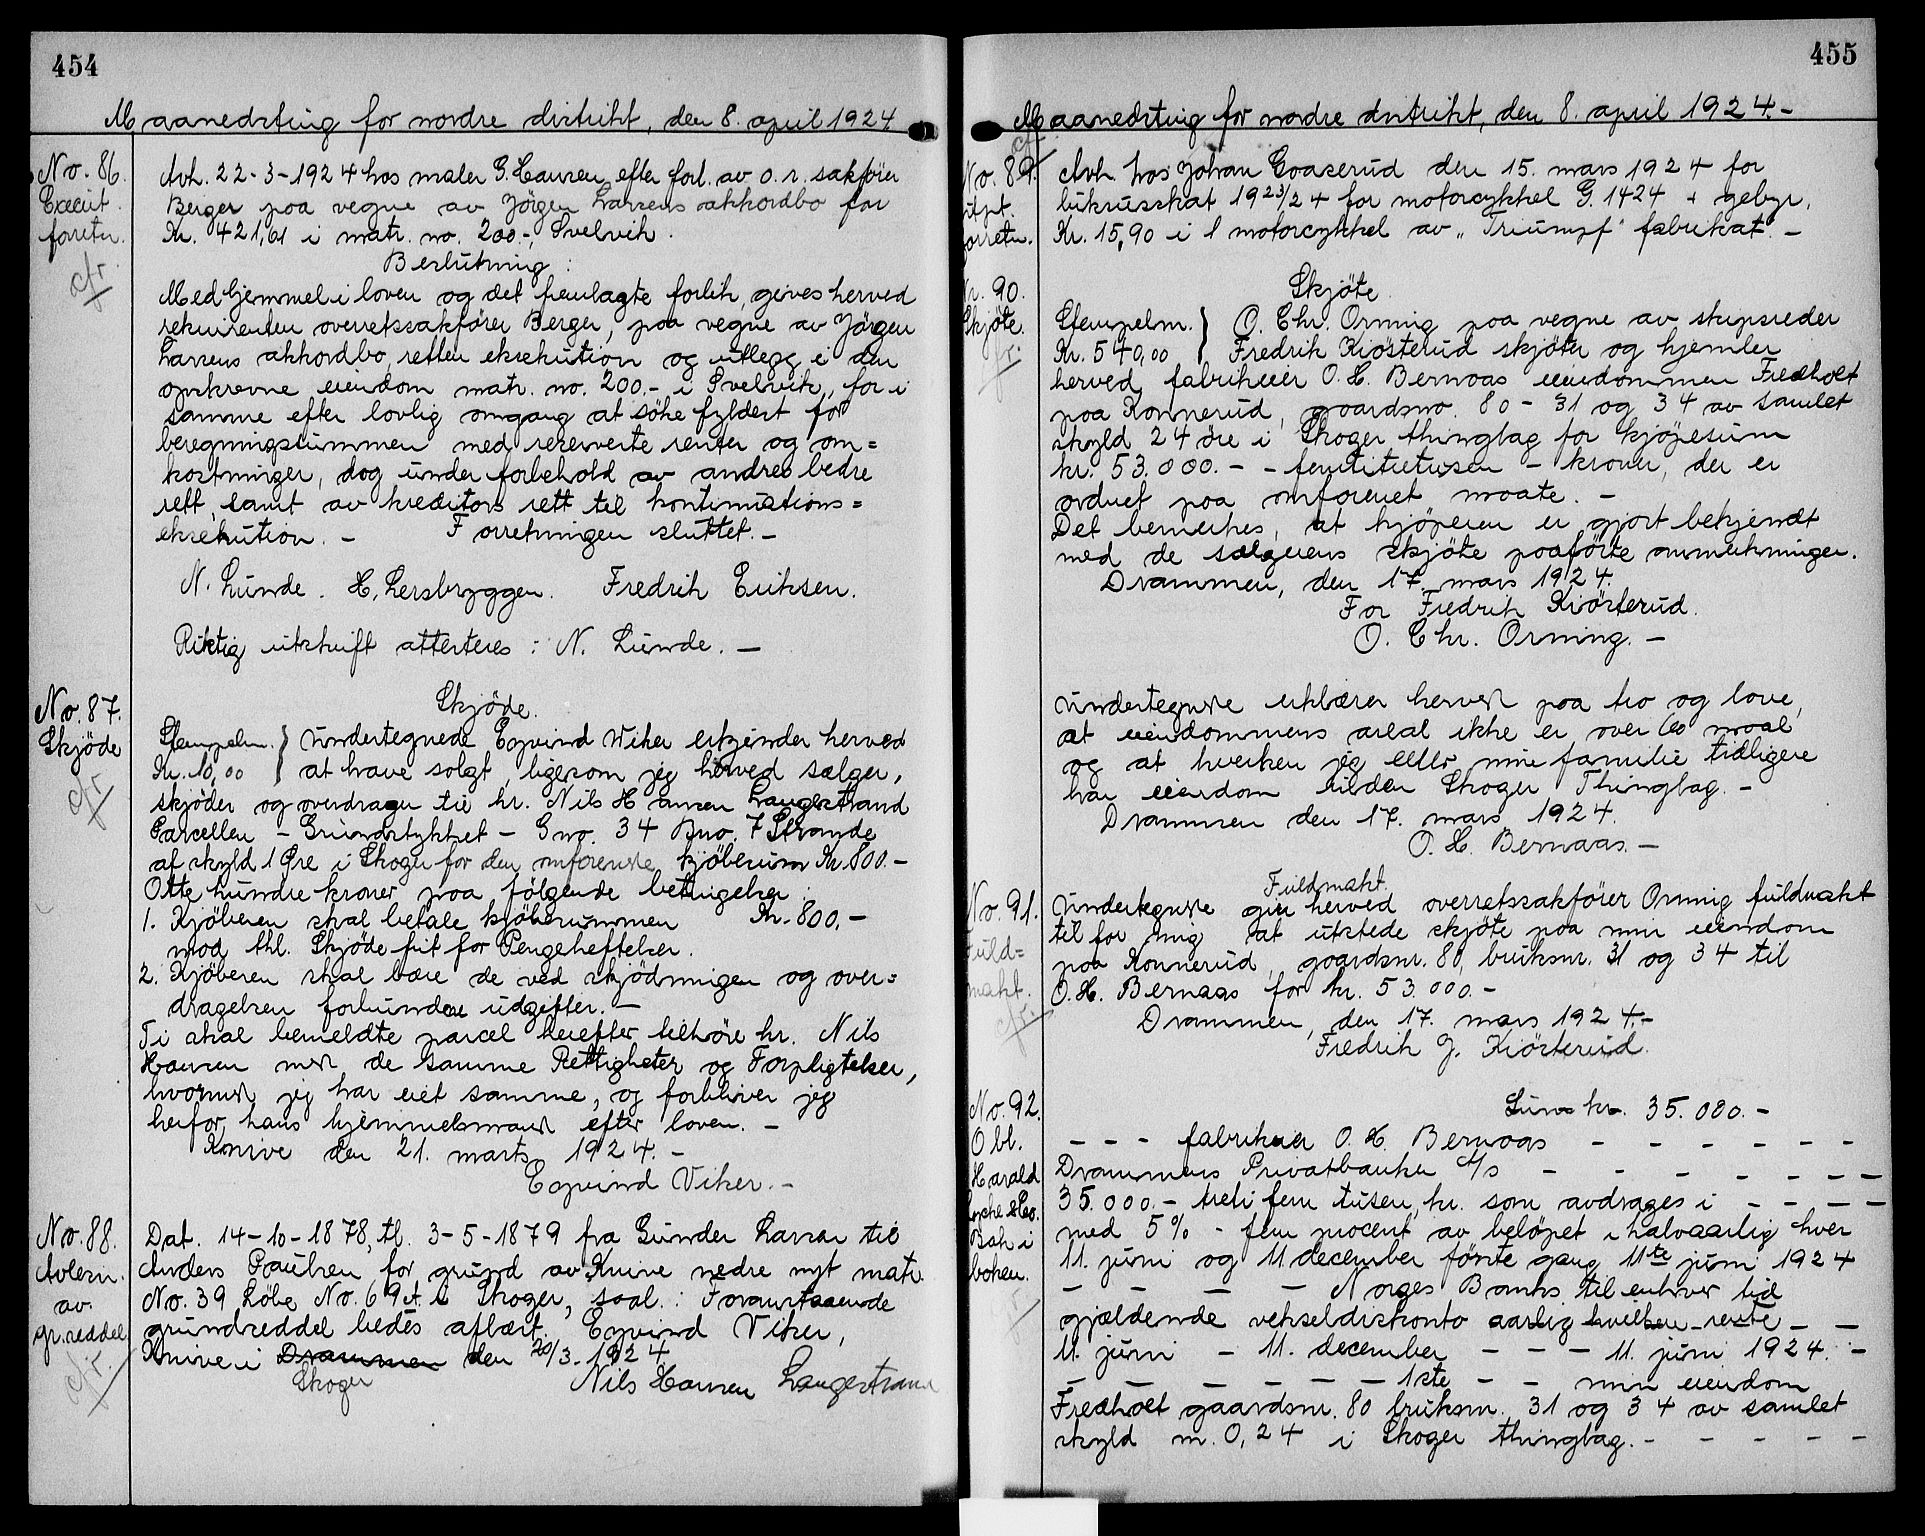 454
Maanedsting for nordre distrikt, den 8. april 1924.
No. 86.
Execut.
forretn.
cfr.
Avh. 22-3-1924 hos maler G. Hansen efter forl. av o.r. sakfører
Berger paa vegne av Jörgen Larsens akkordbo for
Kr. 421,61 i matr. no. 200-, Svelvik.
Beslutning:
Med hjemmel i loven og det fremlagte forlik, gives herved
rekvirenten overretssakfører Berger, paa vegne av Jörgen
Larsens akkordbo, retten eksekution og utlegg i den
opskrevne eiendom matr. no. 200.- i Svelvik, for i
samme efter lovlig omgang at söke fyldest for
beregningssummen med reserverte renter og om=
kostninger, dog under forbehold av andres bedre
rett, samt av kreditors rett til kontinuations=
eksekution. - Forretningen sluttet. -
N. Lunde. H. Lersbryggen. Fredrik Eriksen.
Riktig utskrift attesteres: N. Lunde. -
No. 87.
Skjöde
cfr
Skjöde.
Stempelm. } Undertegnede Eyvind Wiker erkjender herved
Kr. 10,00 } at have solgt, ligesom jeg herved sælger,
skjöder og overdrager til hr. Nils Hansen Langestrand
Parcellen - Grundstykket - Gno. 34 Bno. 7 Strande
af skyld 1 Øre i Skoger for den omforenede kjöbesum Kr. 800.-
Otte hundre kroner paa fölgende betingelser:
1. Kjöberen skal betale kjöbesummen Kr. 800.-
mod thl. Skjöde frit for Pengeheftelser.
2. Kjöberen skal bære de ved skjödningen og over=
dragelsen forbundne udgifter. -
Ti skal bemeldte parcel herefter tilhöre hr. Nils
Hansen med de samme Rettigheter og Forpligtelser,
hvormed jeg har eiet samme, og forbliver jeg
herfor hans hjemmelsmand efter loven. -
Knive den 21. marts 1924. -
Eyvind Viker. -
No. 88.
Avlesn.
av.
gr.seddel
cfr.
Dat. 14-10-1878, tl. 3-5-1879 fra Gunder Larsen til
Anders Paulsen for grund av Knive nedre nyt matr.
No. 39 Löbe No. 69 A i Skoger, saal.: Foranstaaende
grundseddel bedes aflæst. Eyvind Viker,
Knive i Drammen den 20/3-1924
Skoger Nils Hansen Langestrand
455
Maanedsting for nordre distrikt, den 8. april 1924. -
cfr
No. 89.
Utpt.
forretn.
Avh. hos Johan Goaserud den 15. mars 1924 for
luksusskat 1923/24 for motorcykkel G. 1424 + gebyr.
Kr. 15,90 i 1 motorcykkel av "Triumpf" fabrikat. -
Nr. 90.
Skjöte.
cfr.
Skjöte.
Stempelm. } O. Chr. Orning paa vegne av skipsreder
Kr. 540,00 } Fredrik Kiösterud skjöter og hjemler
herved fabrikeier O. H. Bernaas eiendommen Fredholt
paa Konnerud, gaardsno. 80 - 31 og 34 av samlet
skyld 24 öre i Skoger thinglag for kjöpesum
kr. 53.000. - - femtitretusen - kroner, der er
ordnet paa omforenet maate. -
Det bemerkes, at kjöperen er gjort bekjendt
med de sælgerens skjöte paaförte anmerkninger.
Drammen, den 17. mars 1924.
For Fredrik Kiösterud.
O. Chr. Orning. -
Undertegnede erklærer herved paa tro og love,
at eiendommens areal ikke er over 60 maal
og at hverken jeg eller min familie tidligere
har eiendom inden Skoger Thinglag. -
Drammen den 17. mars 1924.
O. H. Bernaas. -
No. 91.
Fuld=
makt.
cfr.
Fuldmakt.
Undertegnede gir herved overretssakfører Orning fuldmakt
til for mig at utstede skjöte paa min eiendom
paa Konnerud, gaardsnr. 80, bruksnr. 31 og 34 til
O. H. Bernaas for kr. 53.000. -
Drammen, den 17. mars 1924. -
Fredrik J. Kiösterud.
No. 92.
Obl.
Harald
Lyche & Co.
Bak i
boken.
Lions kr. 35.000. -
- - - fabrikeier O. H. Bernaas - - - - - -
Drammens Privatbanker A/s - - - - - - -
35.000. - tretifem tusen kr. som avdrages i - - - -
med 5% - fem procent av belöpet i halvaarlig hver
11. juni og 11 december förste gang 11te juni 1924
- - - - Norges Banks til enhver tid
gjældende vekseldiskonto aarlig hvilken rente - -
11. juni - 11. december - - - 11. juni 1924. -
- - - - - - 1ste - - min eiendom
Fredholt gaardsnr. 80 bruksnr. 31 og 34 av samlet
skyld m. 0,24 i Skoger thinglag. - - - - -